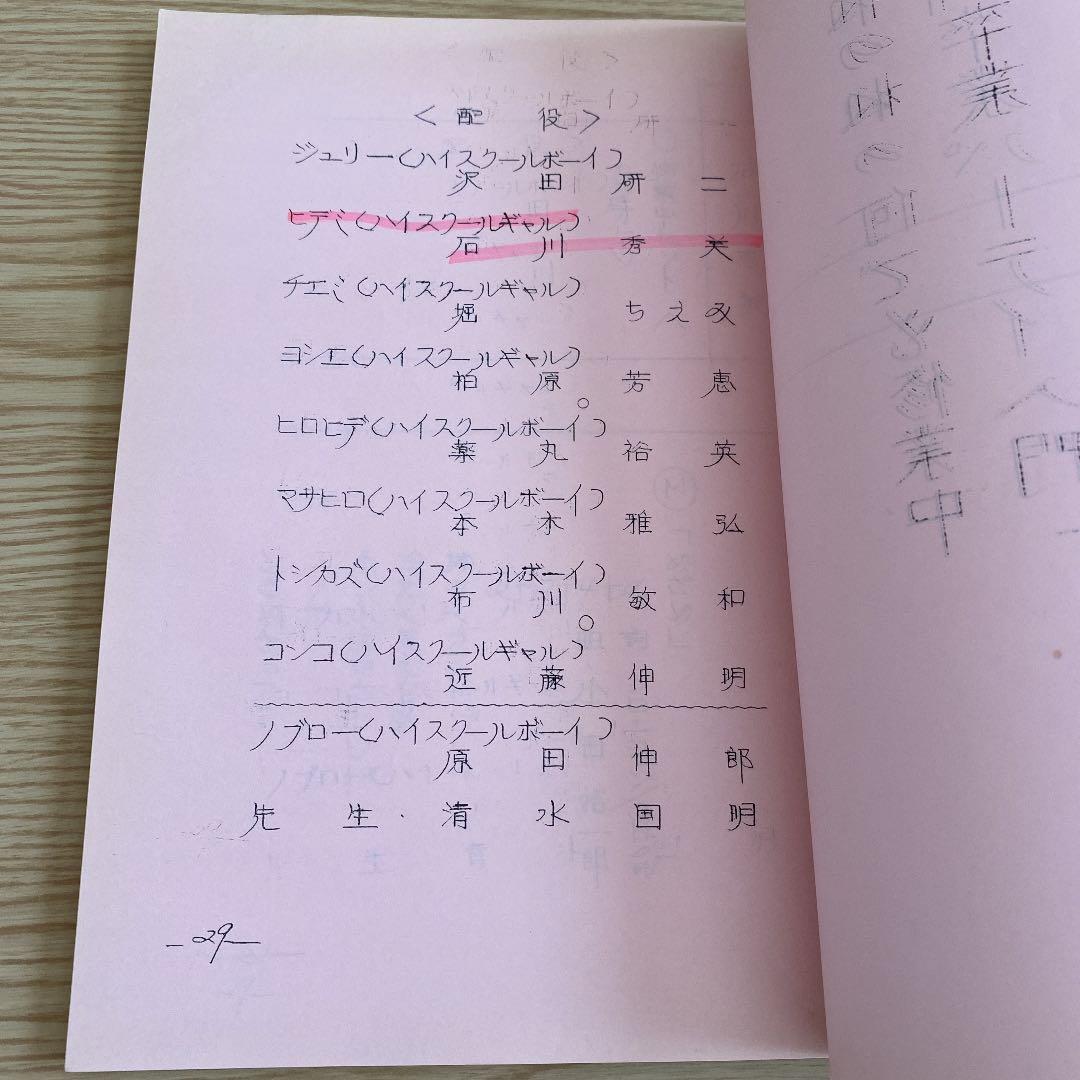 ＜配　役＞
ジュリー（ハイスクールボーイ）
沢　田　研　二
ヒデミ（ハイスクールギャル）
石　川　秀　美
チエミ（ハイスクールギャル）
堀　ちえみ
ヨシエ（ハイスクールギャル）
柏　原　芳　恵
ヒロヒデ（ハイスクールボーイ）
薬　丸　裕　英
マサヒロ（ハイスクールボーイ）
本　木　雅　弘
トシカズ（ハイスクールボーイ）
布　川　敏　和
コンコ（ハイスクールギャル）
近　藤　伸　明
ノブロー（ハイスクールボーイ）
原　田　伸　郎
先　生・清　水　国　明
—29—
卒業パーティ入門
何でも修業中